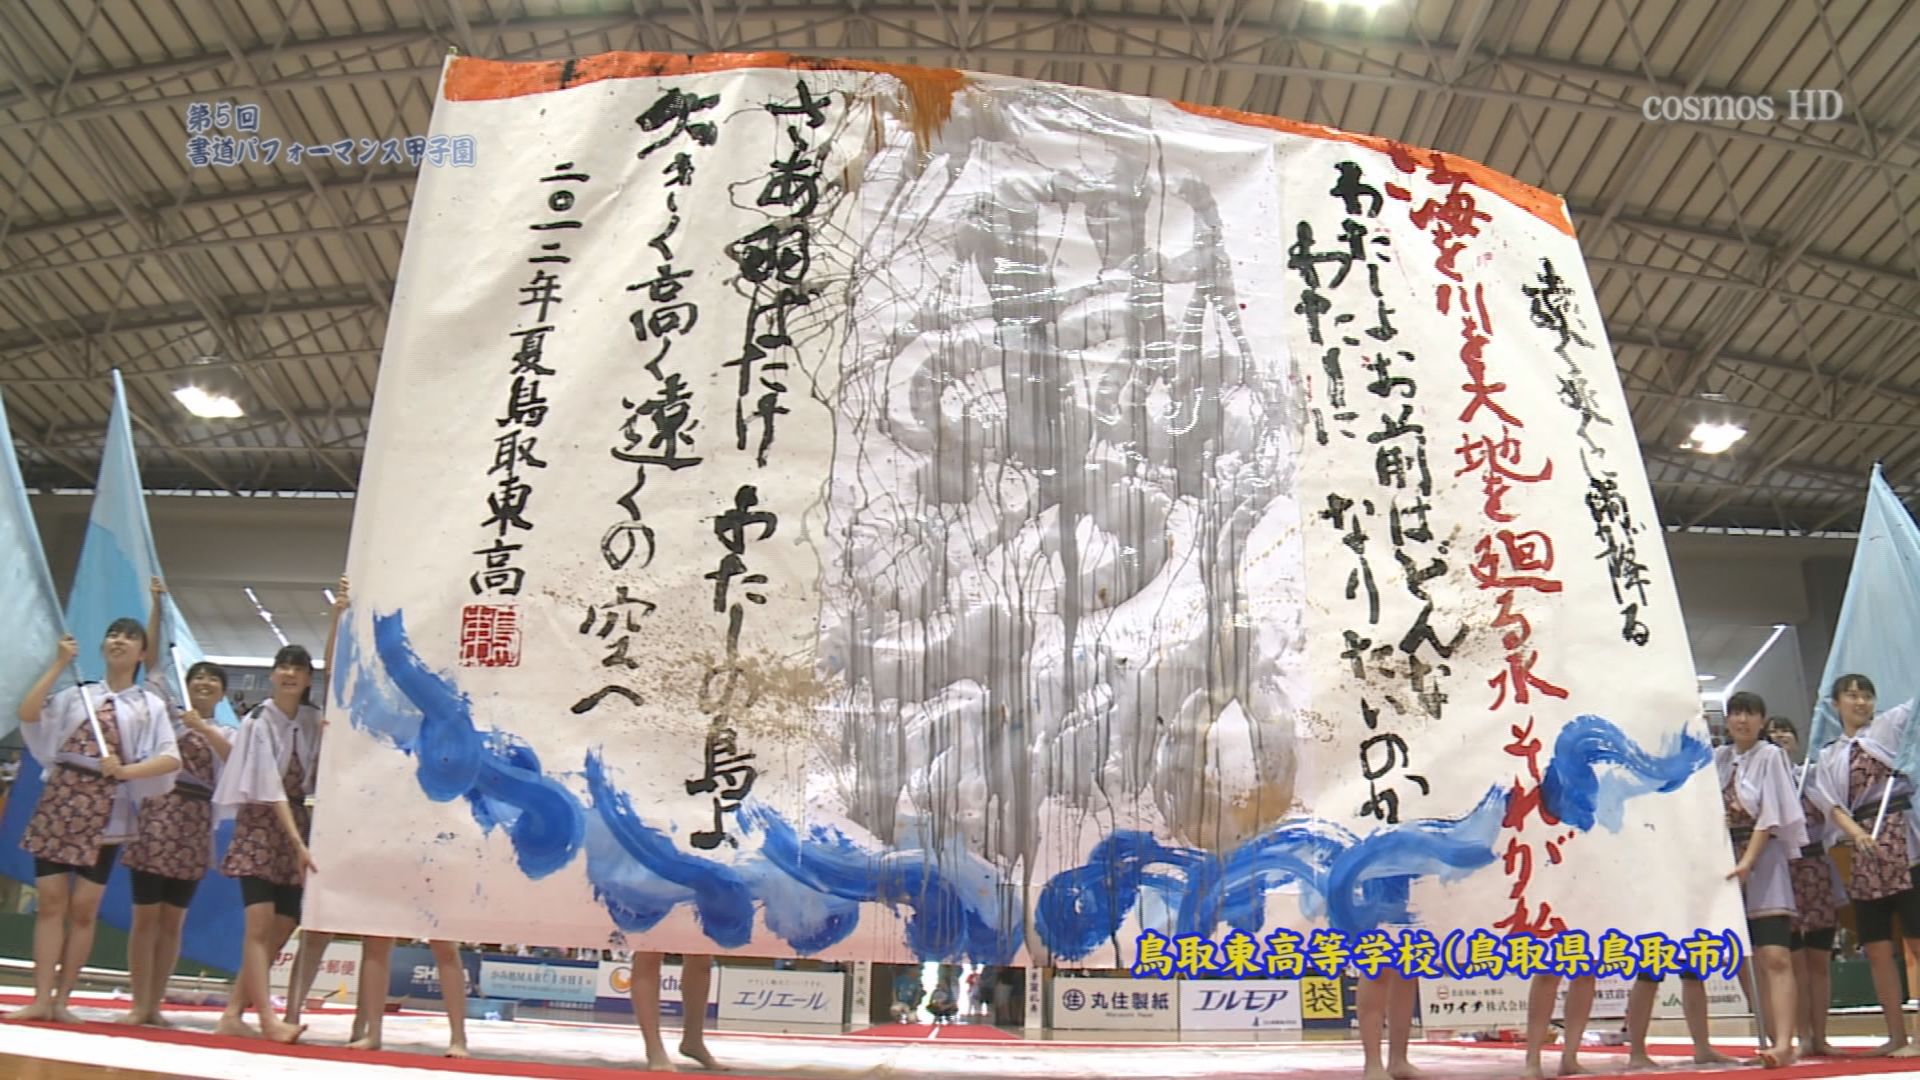 第5回
書道パフォーマンス甲子園
cosmos HD
雨が降る
海を川を大地を廻る水 それが私
わたしよお前はどんな
わたしに なりたいのか
さあ羽ばたけ わたしの鳥よ
大きく高く遠くの空へ
二〇一二年夏鳥取東高
鳥取東高等学校(鳥取県鳥取市)
エリエール
丸住製紙
エルモア
袋
カワイチ株式会社